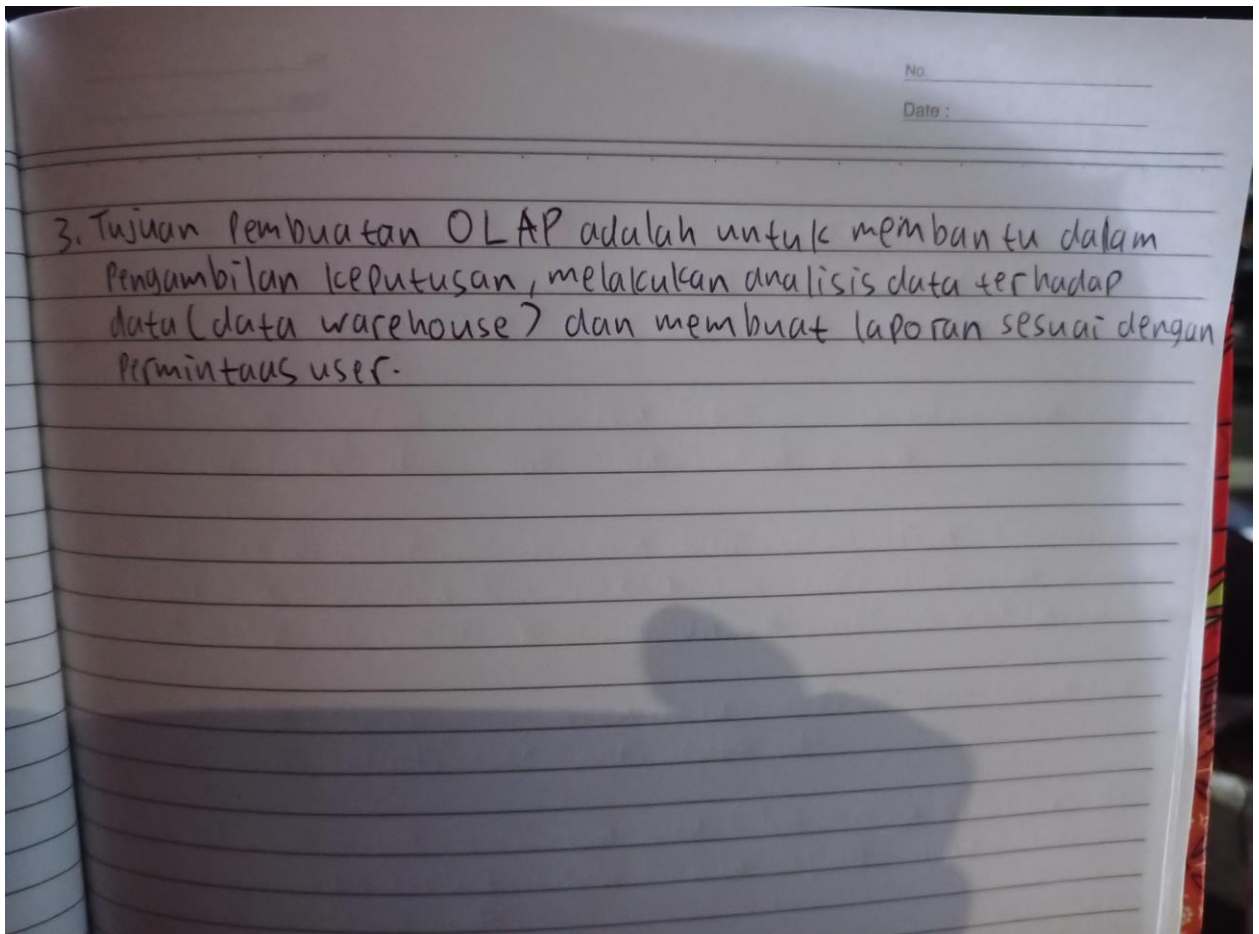 No.
Date :
3. Tujuan Pembuatan OLAP adalah untuk membantu dalam
Pengambilan keputusan, melakukan analisis data terhadap
data (data warehouse) dan membuat laporan sesuai dengan
Permintaas user.